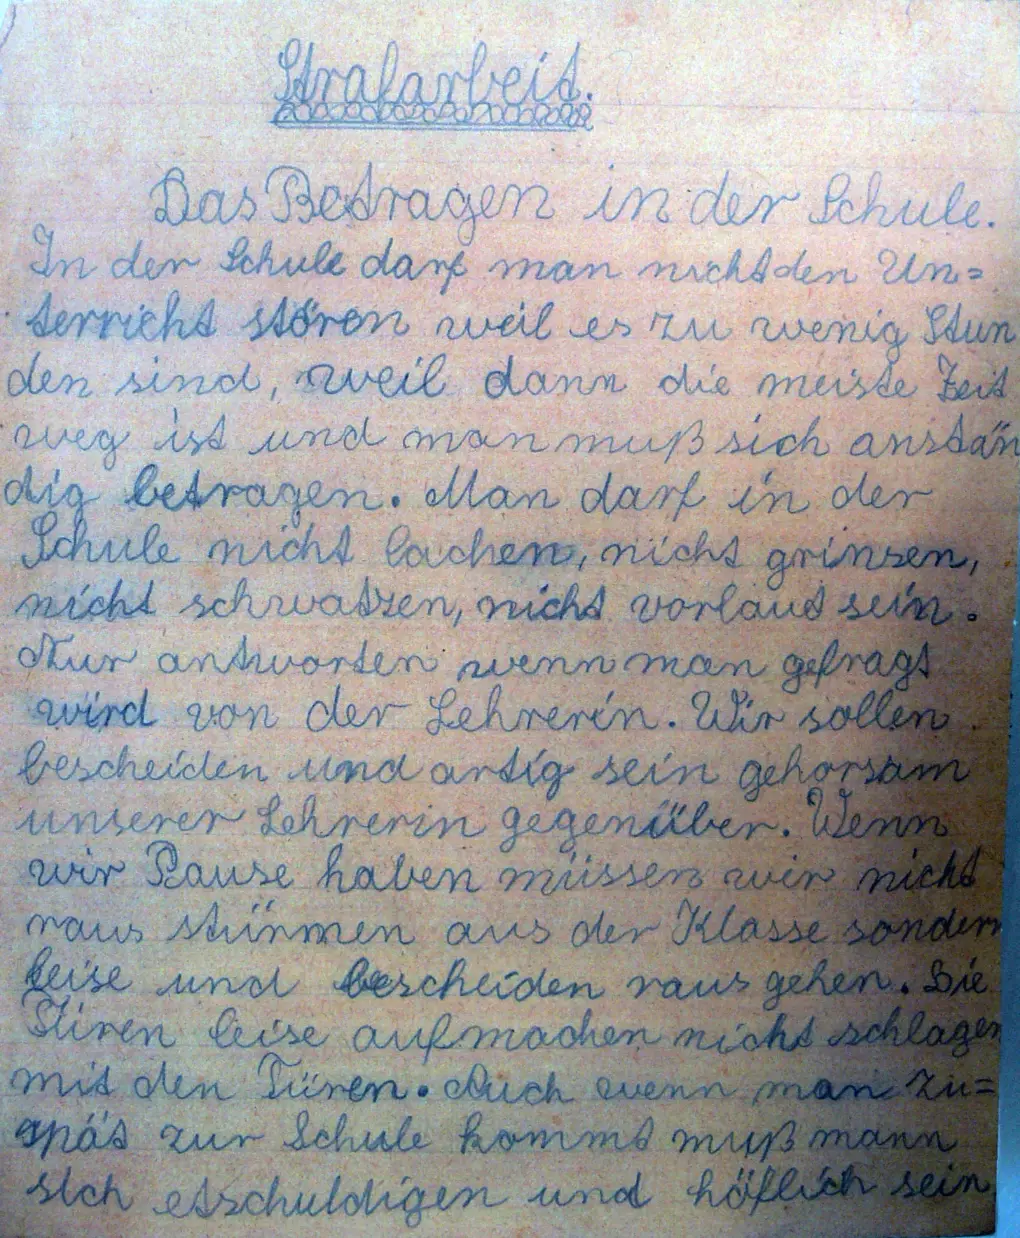 Strafarbeit.
Das Betragen in der Schule.
In der Schule darf man nicht den Un=
terricht stören weil es zu wenig Stun
den sind, weil dann die meiste Zeit
weg ist und man muß sich anstän
dig betragen. Man darf in der
Schule nicht lachen, nicht grinsen,
nicht schwatzen, nicht vorlaut sein.
Nur antworten wenn man gefragt
wird von der Lehrerin. Wir sollen
bescheiden und artig sein gehorsam
unserer Lehrerin gegenüber. Wenn
wir Pause haben müssen wir nicht
raus stürmen aus der Klasse sondern
leise und bescheiden raus gehen. Die
Türen leise aufmachen nicht schlagen
mit den Türen. Auch wenn man zu=
spät zur Schule kommt muß mann
sich etschuldigen und höflich sein